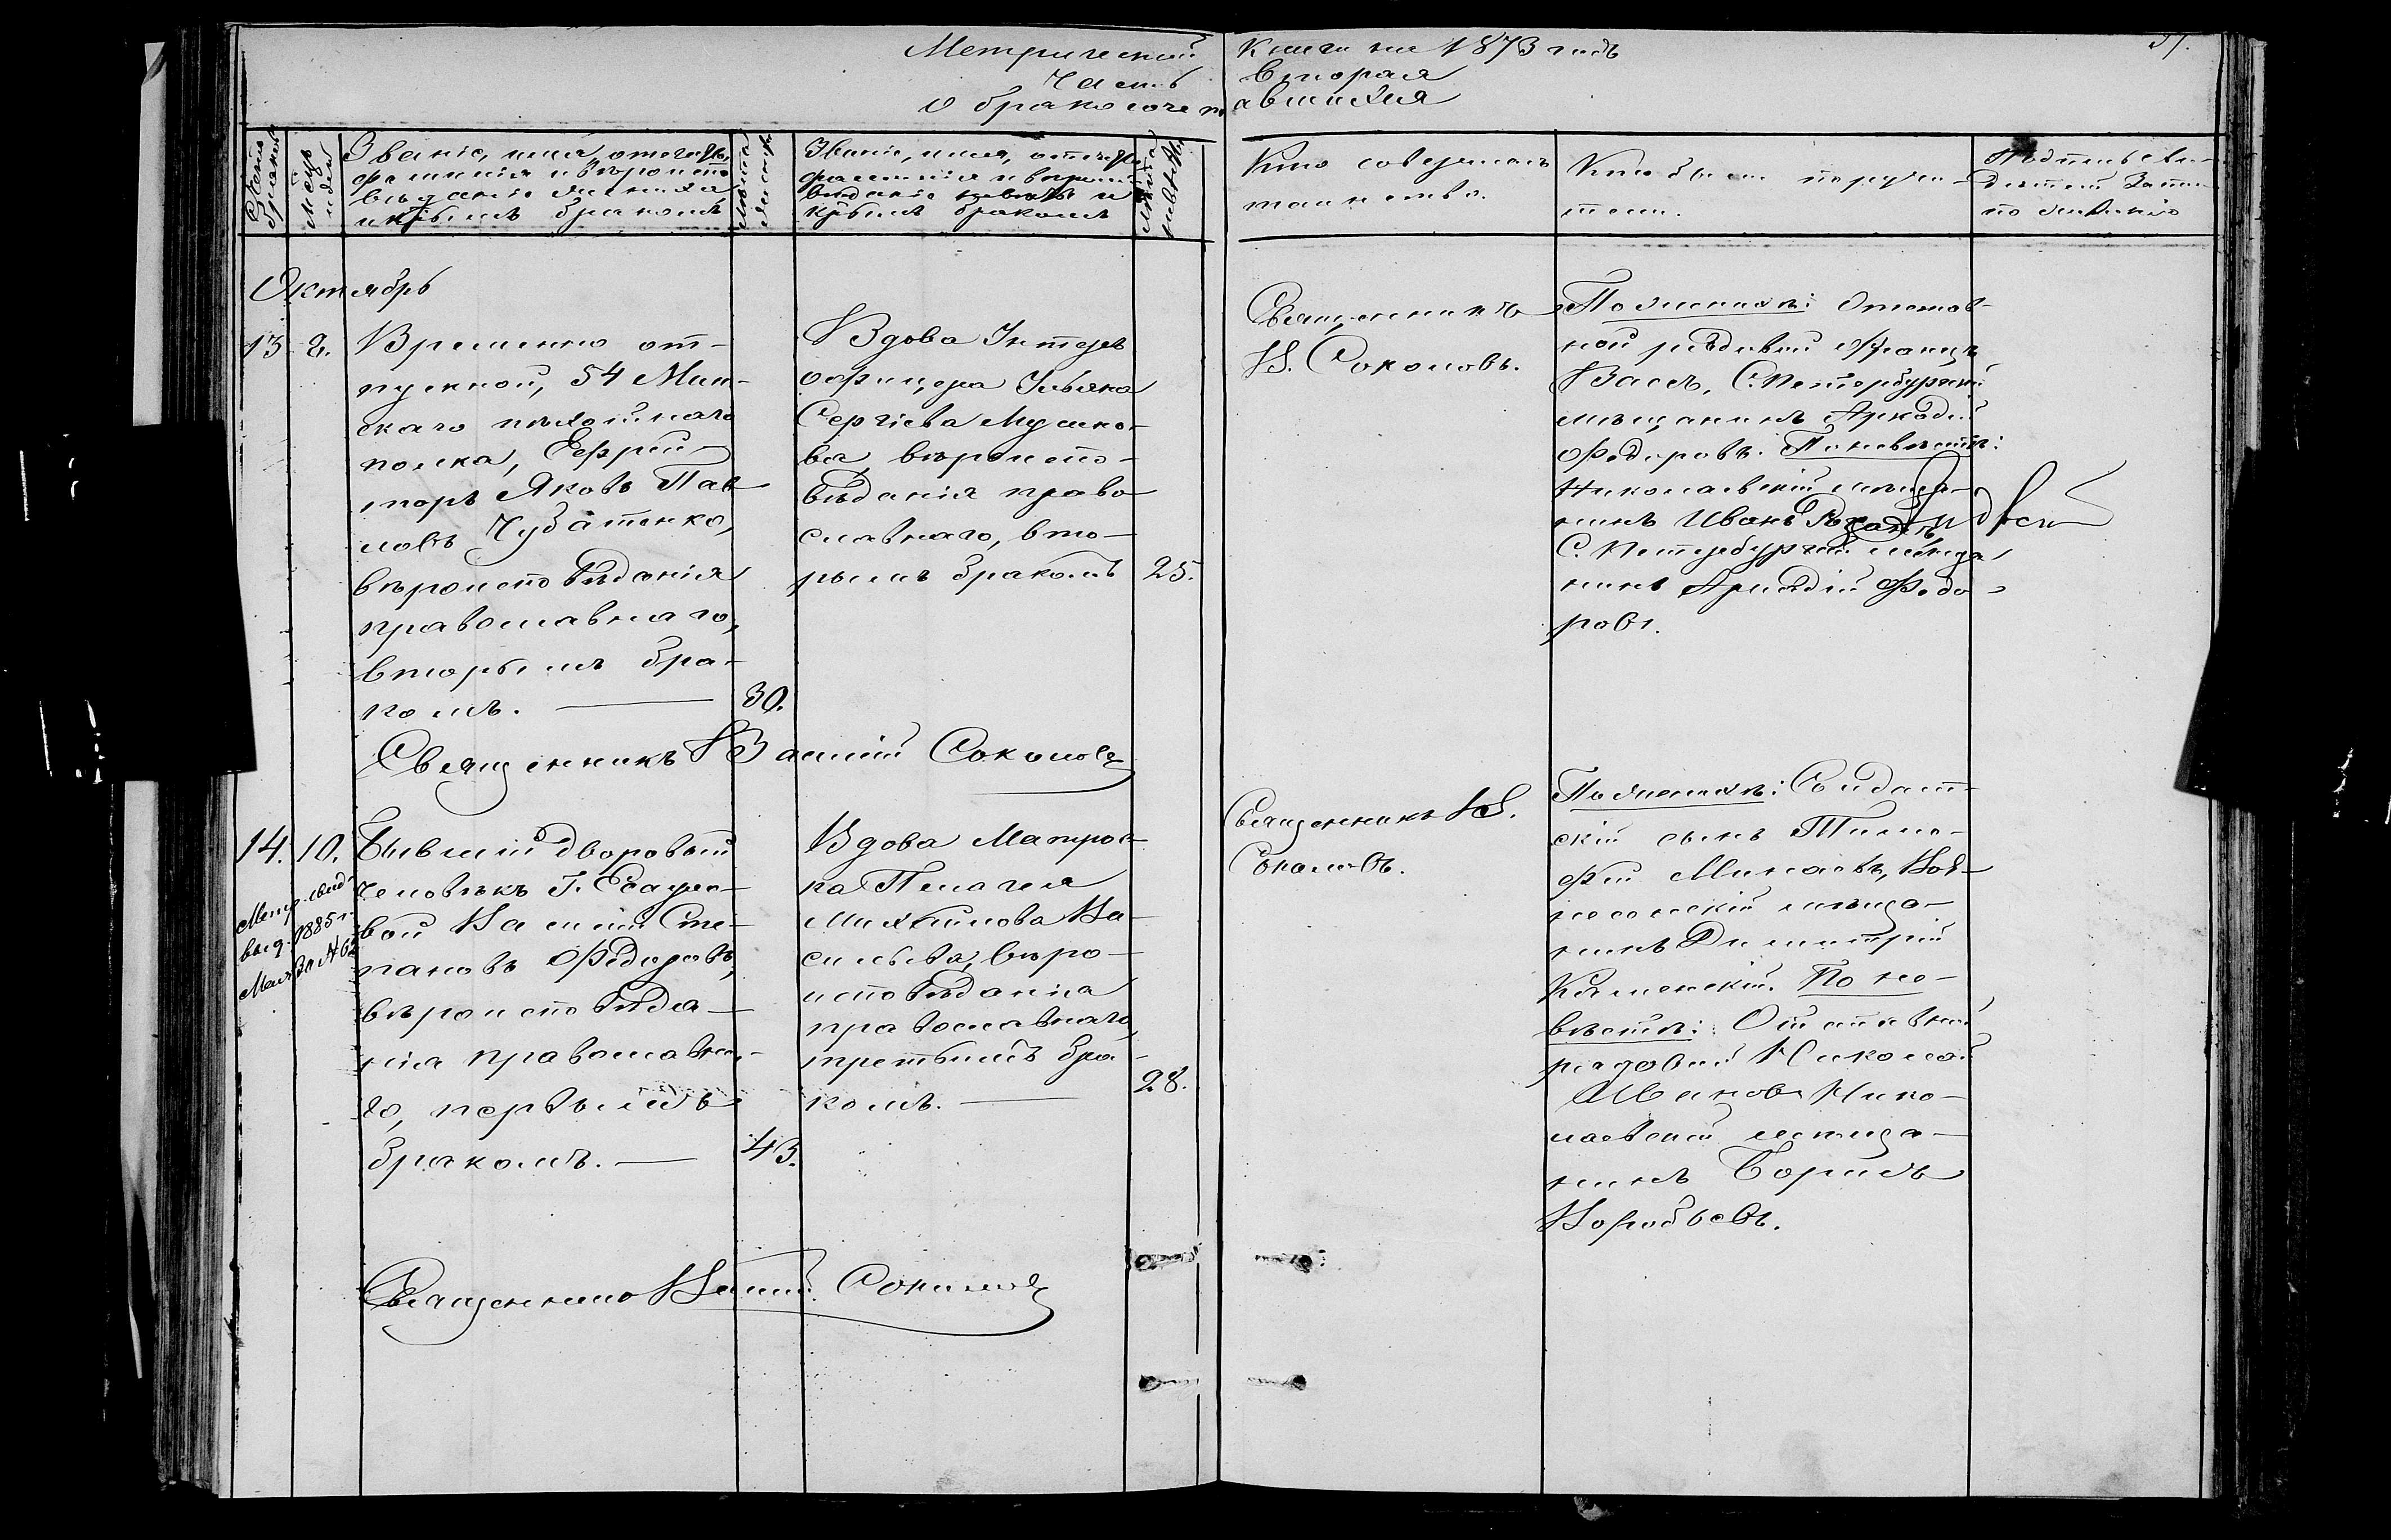 Метрической книги на 1873 годъ
Часть вторая
о бракосочетавшихся
51.
Счетъ браковъ
Мѣсяцъ и день
Званіе, имя, отчество,
фамилія и вѣроиспо
вѣданіе жениха
и кѣмъ бракомъ
Лѣта жениха
Званіе, имя, отчество,
фамилія и вѣроиспо
вѣданіе невѣсты и
кѣмъ бракомъ
Лѣта невѣсты
Кто совершалъ
таинство.
Кто были поручи-
тели.
Подпись сви-
дѣтелей записи
по желанію
Октябрь
13 2.
Временно от-
пускной, 54 Мин-
скаго пѣхотнаго
полка, Ефрей-
торъ Яковъ Пав-
ловъ Чубатенко,
вѣроисповѣданія
православнаго,
вторымъ бра-
комъ. — 30.
Вдова Унтеръ
офицера Ульяна
Сергіева
вѣроиспо-
вѣданія право-
славнаго, вто-
рымъ бракомъ 25.
Священникъ
В. Соколовъ.
По женихѣ: Отстав-
ной рядовой Францъ
С. Петербургскій
мѣщанинъ Аркадій
Федоровъ. По невѣстѣ:
Николаевскій мѣща-
нинъ Иванъ
С. Петербургскій мѣща-
нинъ Аркадій Федо-
ровъ.
Священникъ Василій Соколовъ
14. 10.
Метр. свид.
выд. 1885 г.
Мая за № 62
Бывшій дворовый
человѣкъ Г. Есауло-
вой Василій Сте-
пановъ Федоровъ,
вѣроисповѣда-
нія православна-
го, первымъ
бракомъ. — 43.
Вдова Матрос-
ка Пелагея
Михайлова Ва-
сильева, вѣро-
исповѣданія
православнаго,
третьимъ бра-
комъ. — 28.
Священникъ В.
Соколовъ.
По женихѣ: Солдат-
скій сынъ Тимо-
фей Минаевъ, Воз-
несенскій мѣща-
нинъ Димитрій
Каменскій. По не-
вѣстѣ: Отставной
рядовой Николай
Ивановъ Нико-
лаевскій мѣща-
нинъ Борисъ
Воробьевъ.
Священникъ Василій Соколовъ